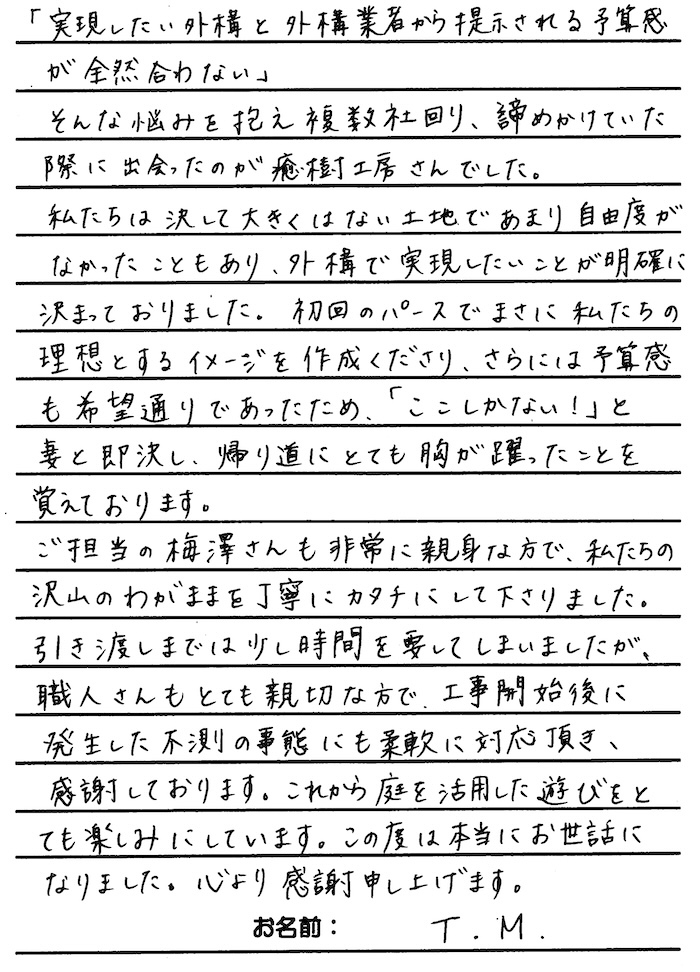 「実現したい外構と外構業者から提示される予算感
が全然合わない」
そんな悩みを抱え複数社回り、諦めかけていた
際に出会ったのが癒樹工房さんでした。
私たちは決して大きくはない土地であまり自由度が
なかったこともあり、外構で実現したいことが明確に
決まっておりました。初回のパースでまさに私たちの
理想とするイメージを作成くださり、さらには予算感
も希望通りであったため、「ここしかない！」と
妻と即決し、帰り道にとても胸が躍ったことを
覚えております。
ご担当の梅澤さんも非常に親身な方で、私たちの
沢山のわがままを丁寧にカタチにして下さりました。
引き渡しまでは少し時間を要してしまいましたが、
職人さんもとても親切な方で、工事開始後に
発生した不測の事態にも柔軟に対応頂き、
感謝しております。これから庭を活用した遊びをと
ても楽しみにしています。この度は本当にお世話に
なりました。心より感謝申し上げます。
お名前： T.M.